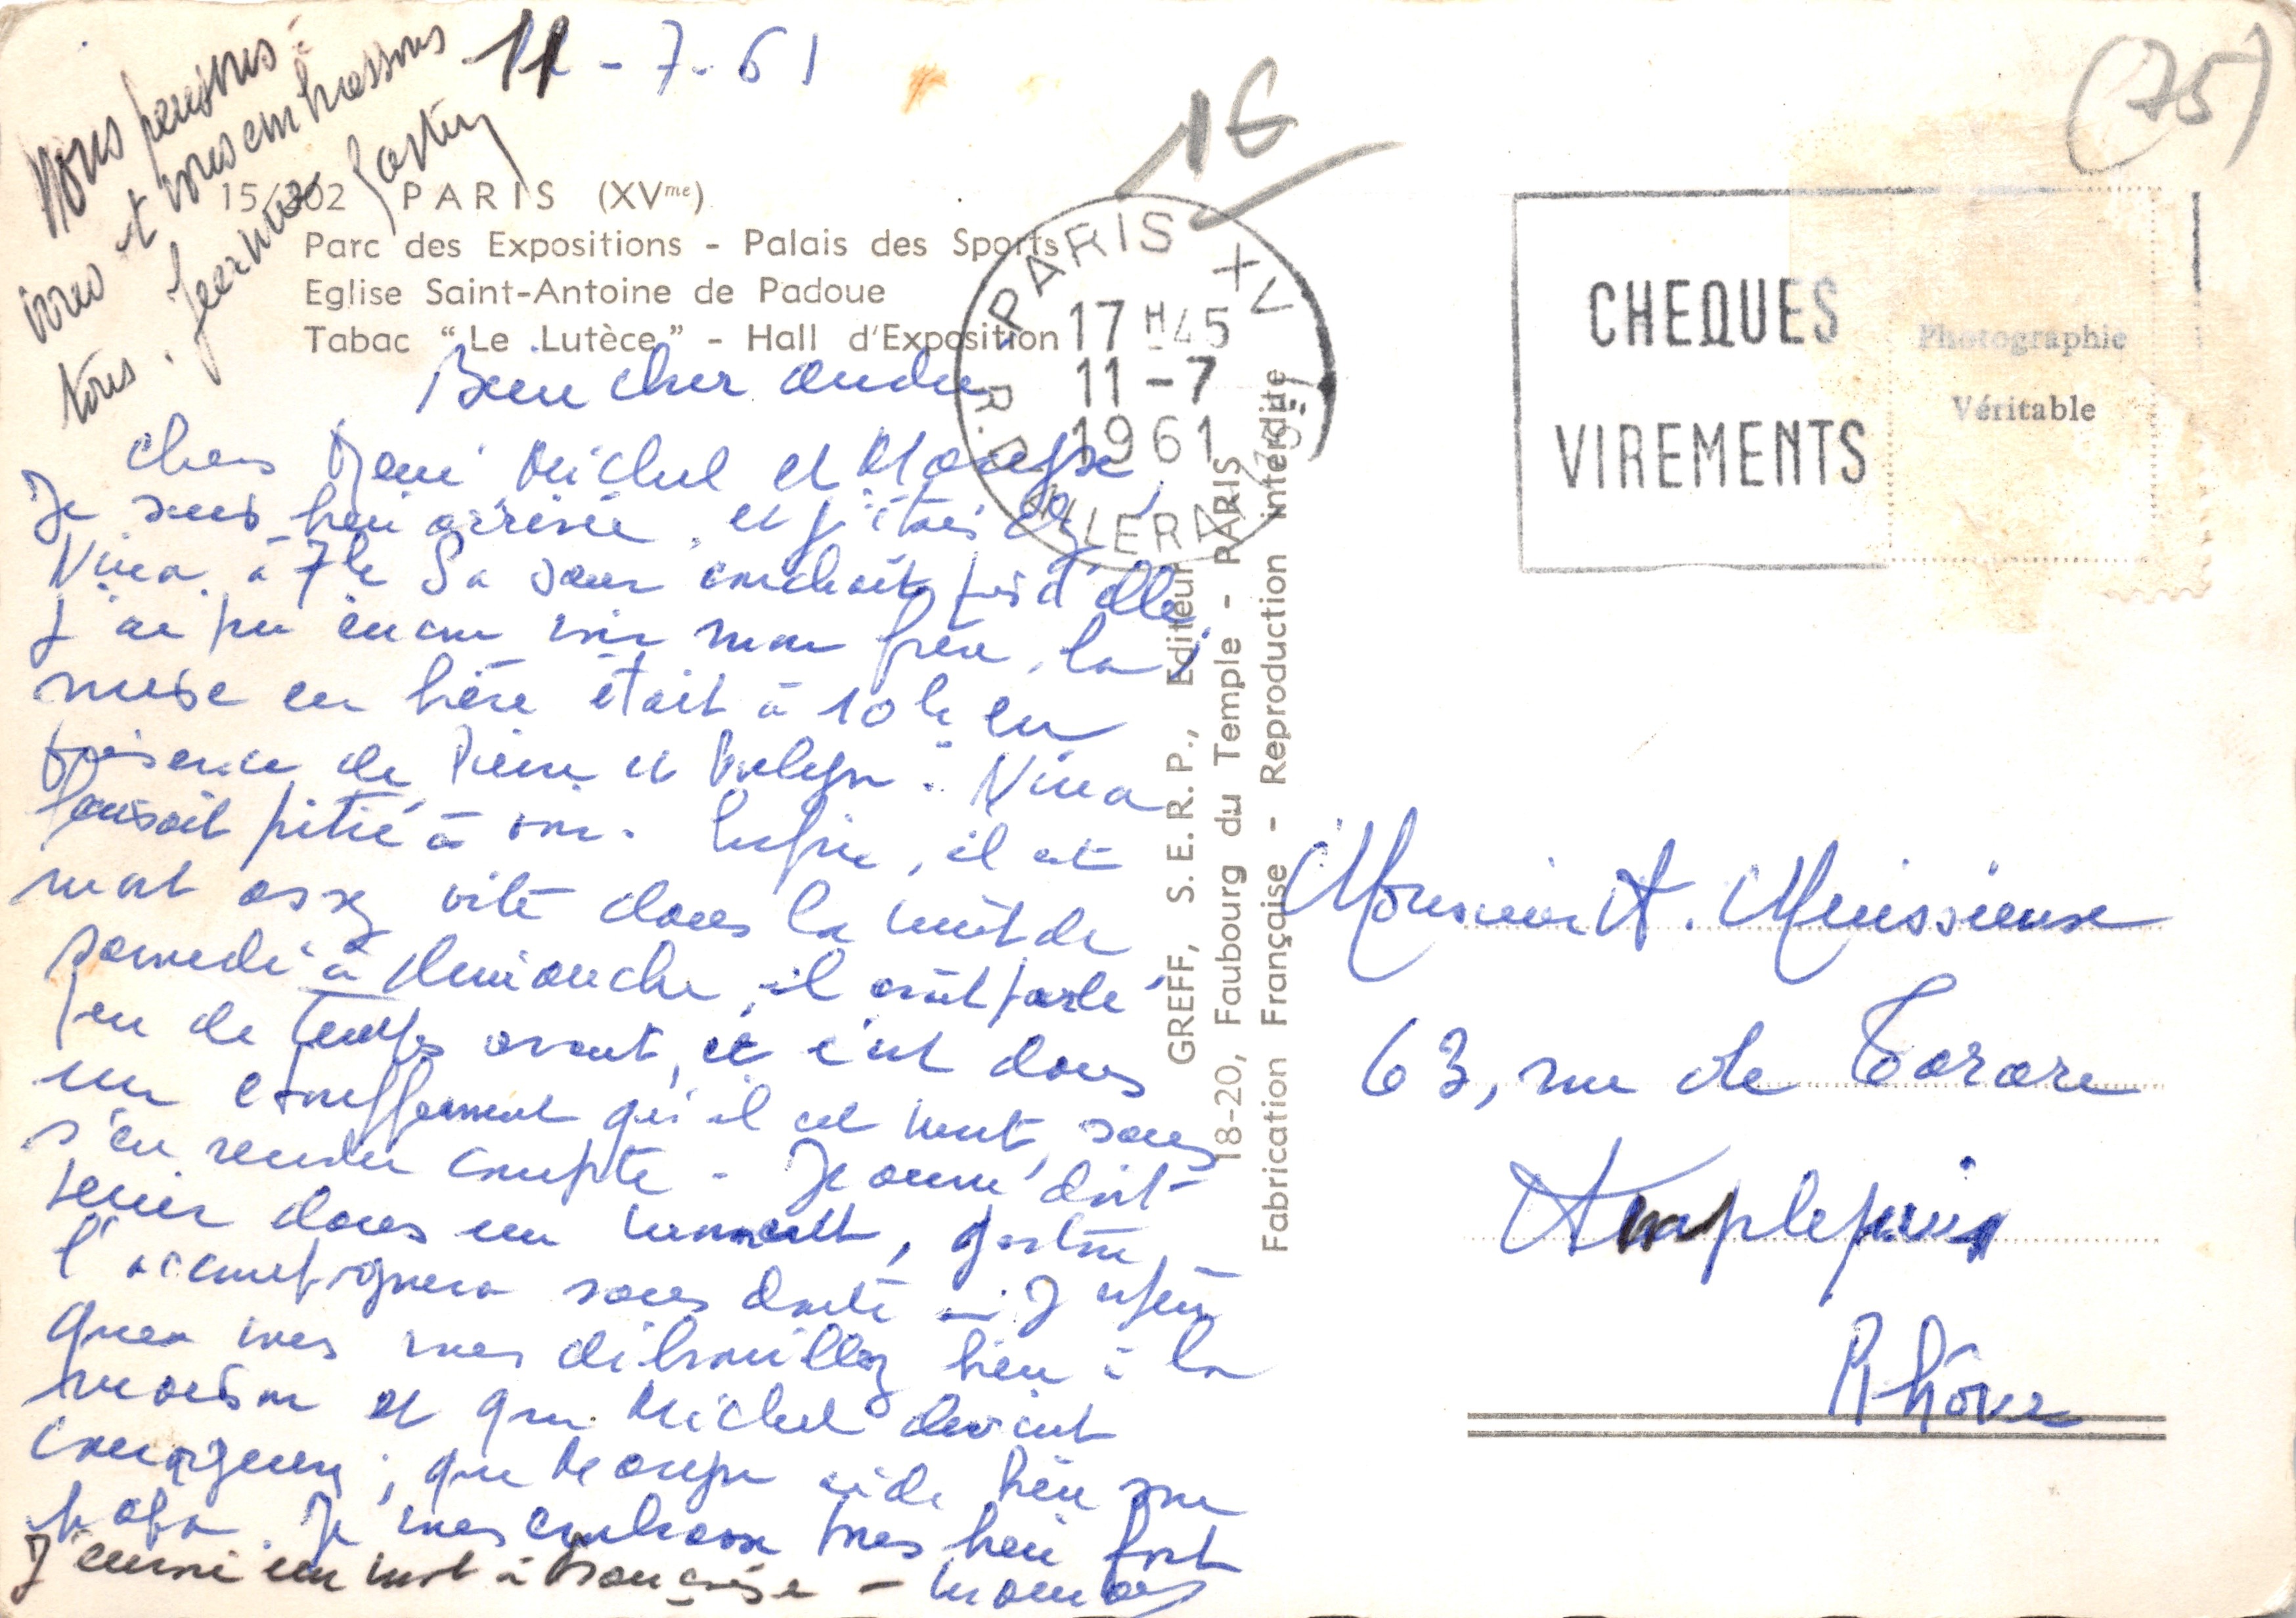 11-7-61
Nous pensons à
vous et vous embrassons
tous. Jeanne Gaston
16
(75)
15/202 PARIS (XVme)
Parc des Expositions - Palais des Sports
Eglise Saint-Antoine de Padoue
Tabac "Le Lutèce" - Hall d'Exposition
PARIS XV
17H45
11-7
1961
CHEQUES
VIREMENTS
Photographie
Véritable
Bien cher André
Chers Michel et
Je suis bien arrivée, et j'étais chez
Nina à 7h Sa sœur couchait près d'elle
J'ai pu encore voir mon frère, la
mise en bière était à 10h en
présence de Pierre et . Nina
faisait pitié à voir. Enfin, il est
mort assez vite dans la nuit de
samedi à dimanche, il avait parlé
peu de temps avant, et c'est dans
un étouffement qu'il est mort, sans
s'en rendre compte - Jeanne doit
venir dans un moment, Gaston
l'accompagnera sans doute - J'espère
que vous vous débrouillez bien à la
maison et que Michel devient
courageux, que aide bien son
papa. Je vous embrasse tous bien fort
J'envoie un mot à Françoise - Maman
GREFF, S.E.R.P., Editeur
18-20, Faubourg du Temple - PARIS
Fabrication Française - Reproduction interdite
Monsieur A. Muissieux
63, rue de Tarare
Amplepuis
Rhône